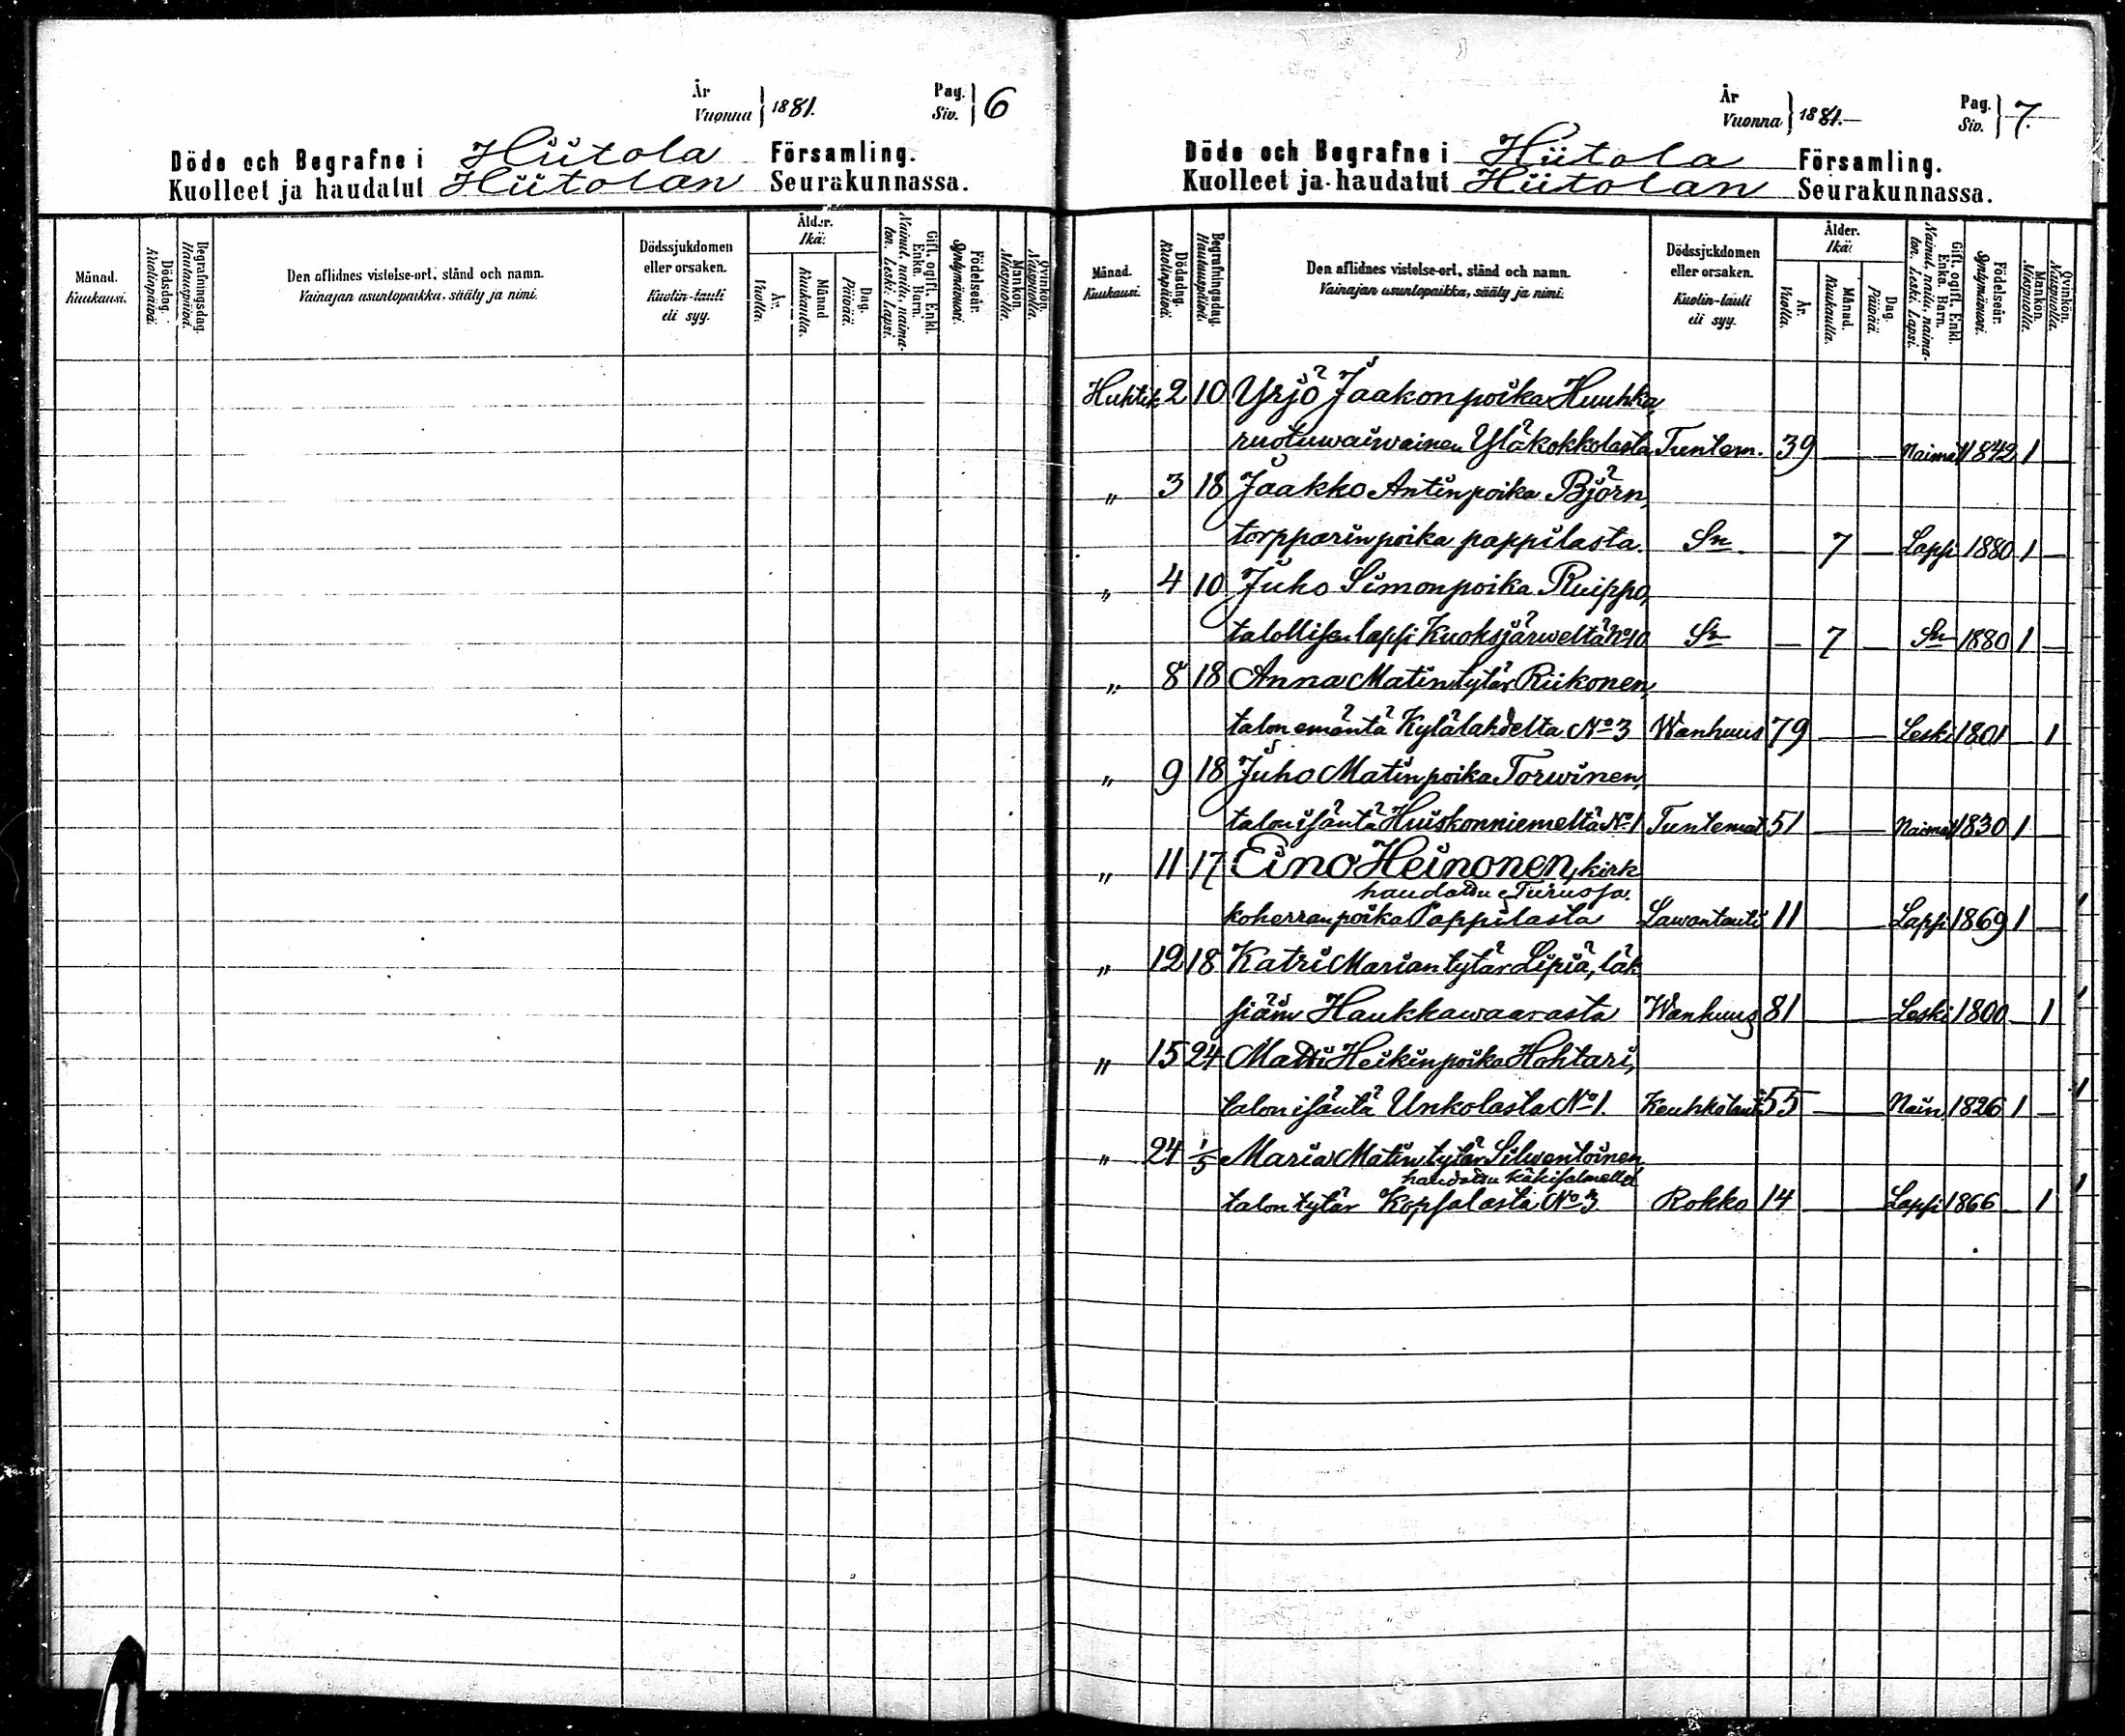 År
Vuonna } 1881.
Pag.
Siv. } 6
Döde och Begrafne i Hiitola Församling.
Kuolleet ja haudatut Hiitolan Seurakunnassa.
Månad. Kuukausi.
Dödsdag. Kuolinpäivä.
Begrafningsdag. Hautauspäivä.
Den aflidnes vistelse-ort, stånd och namn.
Vainajan asuntopaikka, sääty ja nimi.
Dödssjukdomen eller orsaken.
Kuolin-tauti eli syy.
Ålder. Ikä:
År. Vuotta.
Månad Kuukautta.
Dag. Päivää.
Gift. ogift. Enkl. Enka. Barn.
Nainut, naitu, naimaton. Leski. Lapsi.
Födelseår. Syntymävuosi.
Mankön. Miespuolia.
Qvinkön. Naispuolia.
År
Vuonna } 1881.
Pag.
Siv. } 7.
Döde och Begrafne i Hiitola Församling.
Kuolleet ja haudatut Hiitolan Seurakunnassa.
Månad. Kuukausi.
Dödsdag. Kuolinpäivä.
Begrafningsdag. Hautauspäivä.
Den aflidnes vistelse-ort, stånd och namn.
Vainajan asuntopaikka, sääty ja nimi.
Dödssjukdomen eller orsaken.
Kuolin-tauti eli syy.
Ålder. Ikä:
År. Vuotta.
Månad. Kuukautta.
Dag. Päivää.
Gift. ogift. Enkl. Enka. Barn.
Nainut, naitu, naimaton. Leski. Lapsi.
Födelseår. Syntymävuosi.
Mankön. Miespuolia.
Qvinkön. Naispuolia.
Huhtik. 2 10 Yrjö Jaakonpoika Huuhka,
ruotuwaiwainen Yläkokkolasta Tuntem. 39 — — Naimat 1842 1 —
" 3 18 Jaakko Antinpoika Björn,
torpparin poika pappilasta. Sn — 7 — Lapsi 1880 1 —
" 4 10 Juho Simonpoika Ruippo,
talollisen lapsi Kuoksjärweltä No 10 Sn — 7 — Sn 1880 1 —
" 8 18 Anna Matintytär Riikonen,
talon emäntä Kylälahdelta No 3 Wanhuus 79 — — Leski 1801 — 1
" 9 18 Juho Matinpoika Torwinen,
talon isäntä Huiskonniemeltä No 1 Tuntemat 51 — — Naimat 1830 1 —
" 11 17 Eino Heinonen, kirk
haudattu Turussa.
koherran poika Pappilasta Lawantauti 11 — — Lapsi 1869 1 —
" 12 18 Katri Mariantytär Lipiä, läk
siäin Haukkawaarasta Wanhuus 81 — — Leski 1800 — 1
" 15 24 Matti Heikinpoika Hohtari,
talon isäntä Unkolasta No 1. Keuhkotauti 55 — — Nain 1826 1 —
" 24 1/5 Maria Matintytär Silwentoinen
haudattu Käkisalmella
talon tytär Kopsalasta No 3 Rokko 14 — — Lapsi 1866 — 1